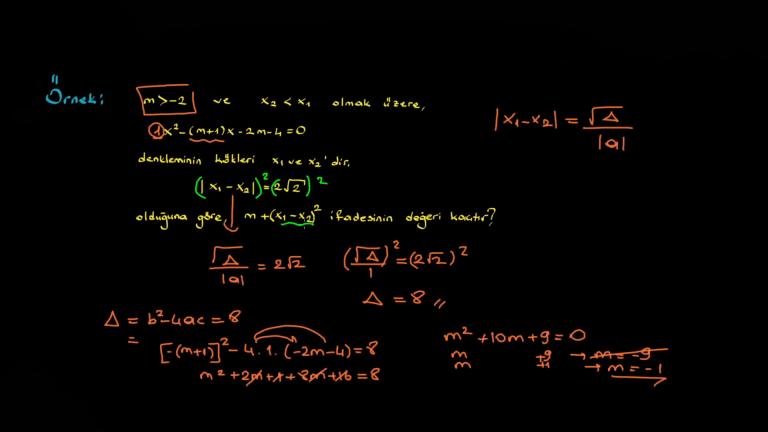 Örnek: m > -2 ve x₂ < x₁ olmak üzere,
1x² - (m+1)x - 2m - 4 = 0
denkleminin kökleri x₁ ve x₂'dir.
(|x₁ - x₂|)² = (2√2)²
olduğuna göre, m + (x₁ - x₂)² ifadesinin değeri kaçtır?
|x₁ - x₂| = √Δ / |a|
√Δ / |a| = 2√2
(√Δ / 1)² = (2√2)²
Δ = 8 //
Δ = b² - 4ac = 8
= [-(m+1)]² - 4.1.(-2m-4) = 8
m² + 2m + 1 + 8m + 16 = 8
m² + 10m + 9 = 0
m +9 → m = -9
m +1 → m = -1